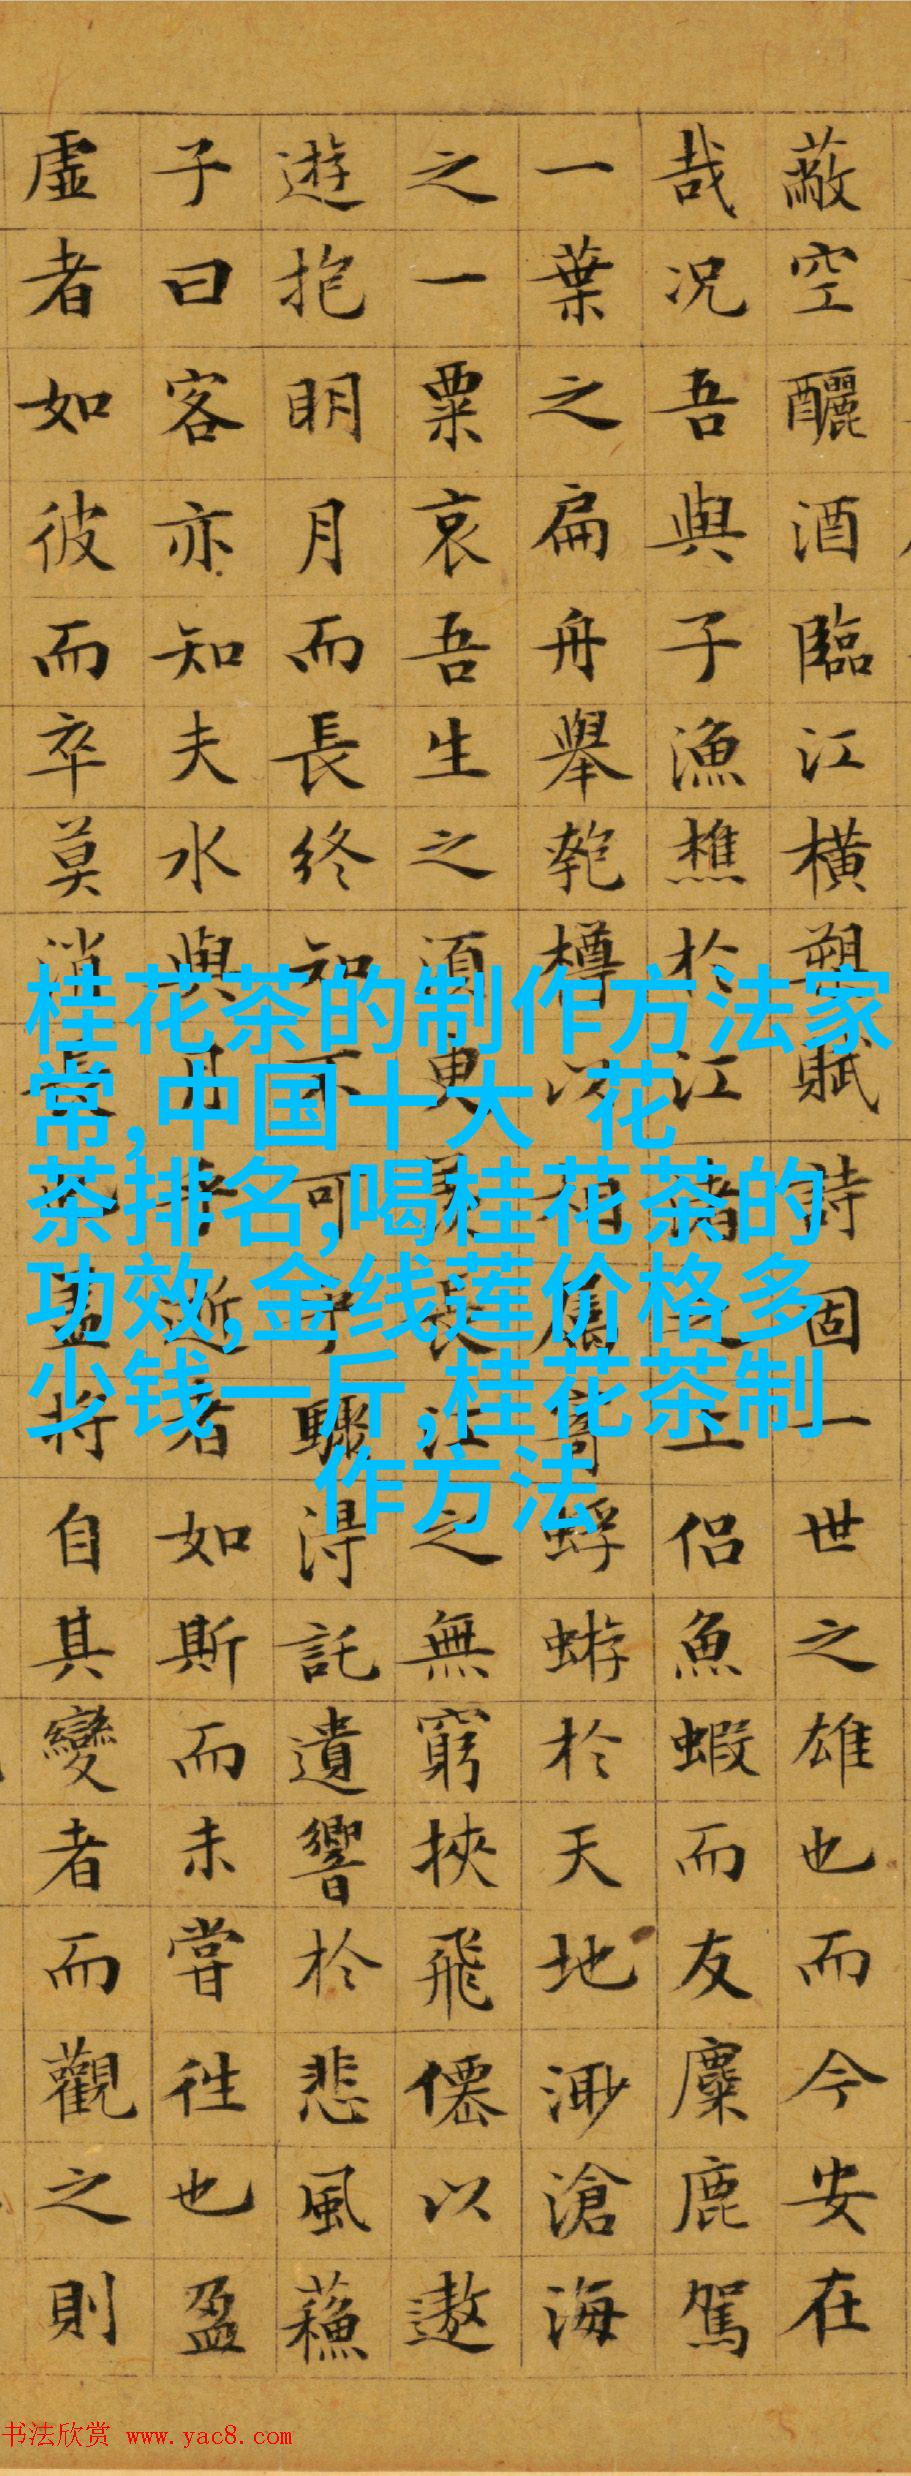 蔽空釃酒臨江橫槊賦詩固一世之雄也而今安在
哉况吾與子漁樵於江渚之上侣魚蝦而友麋鹿駕
一葉之扁舟舉匏樽以相屬寄蜉蝣於天地渺滄海
之一粟哀吾生之須臾羨長江之無窮挾飛僊以遨
遊抱明月而長終知不可乎驟得託遺響於悲風蘓
子曰客亦知夫水與月乎逝者如斯而未嘗往也盈
虛者如彼而卒莫消長也盖將自其變者而觀之則
桂花茶的制作方法家
常,中国十大 花
茶排名,喝桂花茶的
功效,金线莲价格多
少钱一斤,桂花茶制
作方法
书法欣赏 www.yac8.com